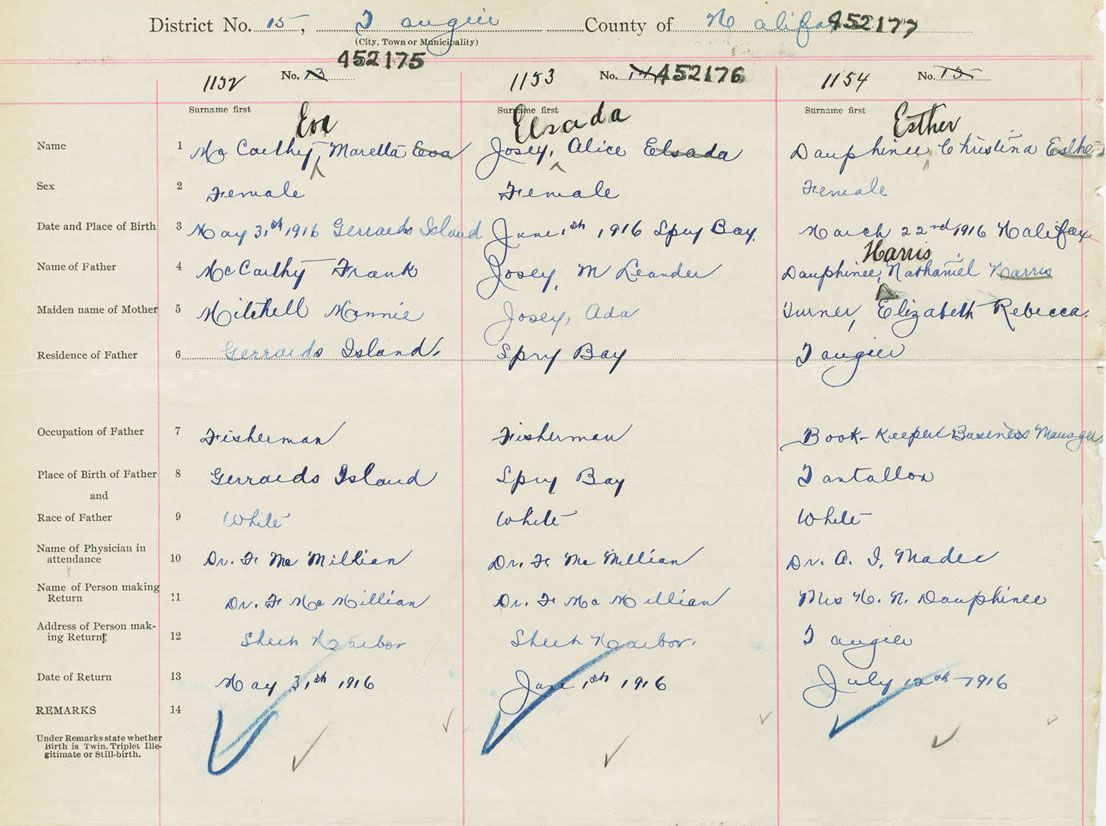 District No. 15, Tangier County of Halifax 452177
(City, Town or Municipality)
452175
1152 No. 13 1153 No. 14 452176 1154 No. 15
Surname first Surname first Surname first
Eva Elsada Esther
Name 1 McCarthy, Maretta Eva Josey, Alice Elsada Dauphinee, Christina Esther
Sex 2 Female Female Female
Date and Place of Birth 3 May 31st 1916 Gerrards Island June 1st 1916 Spry Bay. March 22nd 1916 Halifax
Harris
Name of Father 4 McCarthy Frank Josey, M Leander Dauphinee, Nathaniel Harris
Maiden name of Mother 5 Mitchell Minnie Josey, Ada Turner, Elizabeth Rebecca.
Residence of Father 6 Gerrards Island. Spry Bay Tangier
Occupation of Father 7 Fisherman Fisherman Book-Keeper Business Manager
Place of Birth of Father 8 Gerrards Island Spry Bay Tantallon
and
Race of Father 9 White White White
Name of Physician in
attendance 10 Dr. F. McMillian Dr. F. McMillian Dr. A. I. Mader
Name of Person making
Return 11 Dr. F. McMillian Dr. F. McMillian Mrs H. N. Dauphinee
Address of Person mak-
ing Return 12 Sheet Harbor Sheet Harbor. Tangier
Date of Return 13 May 31st 1916 June 1st 1916 July 12th 1916
REMARKS 14
Under Remarks state whether
Birth is Twin, Triplet Ille-
gitimate or Still-birth.